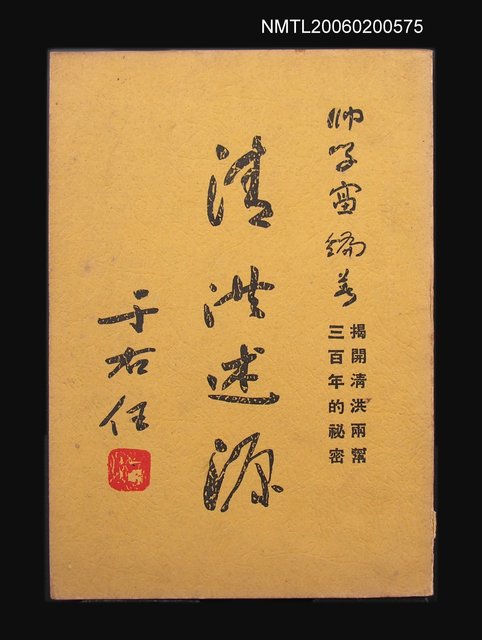 NMTL20060200575
帥學富編著
揭開清洪兩幫
三百年的祕密
清洪述源
于右任